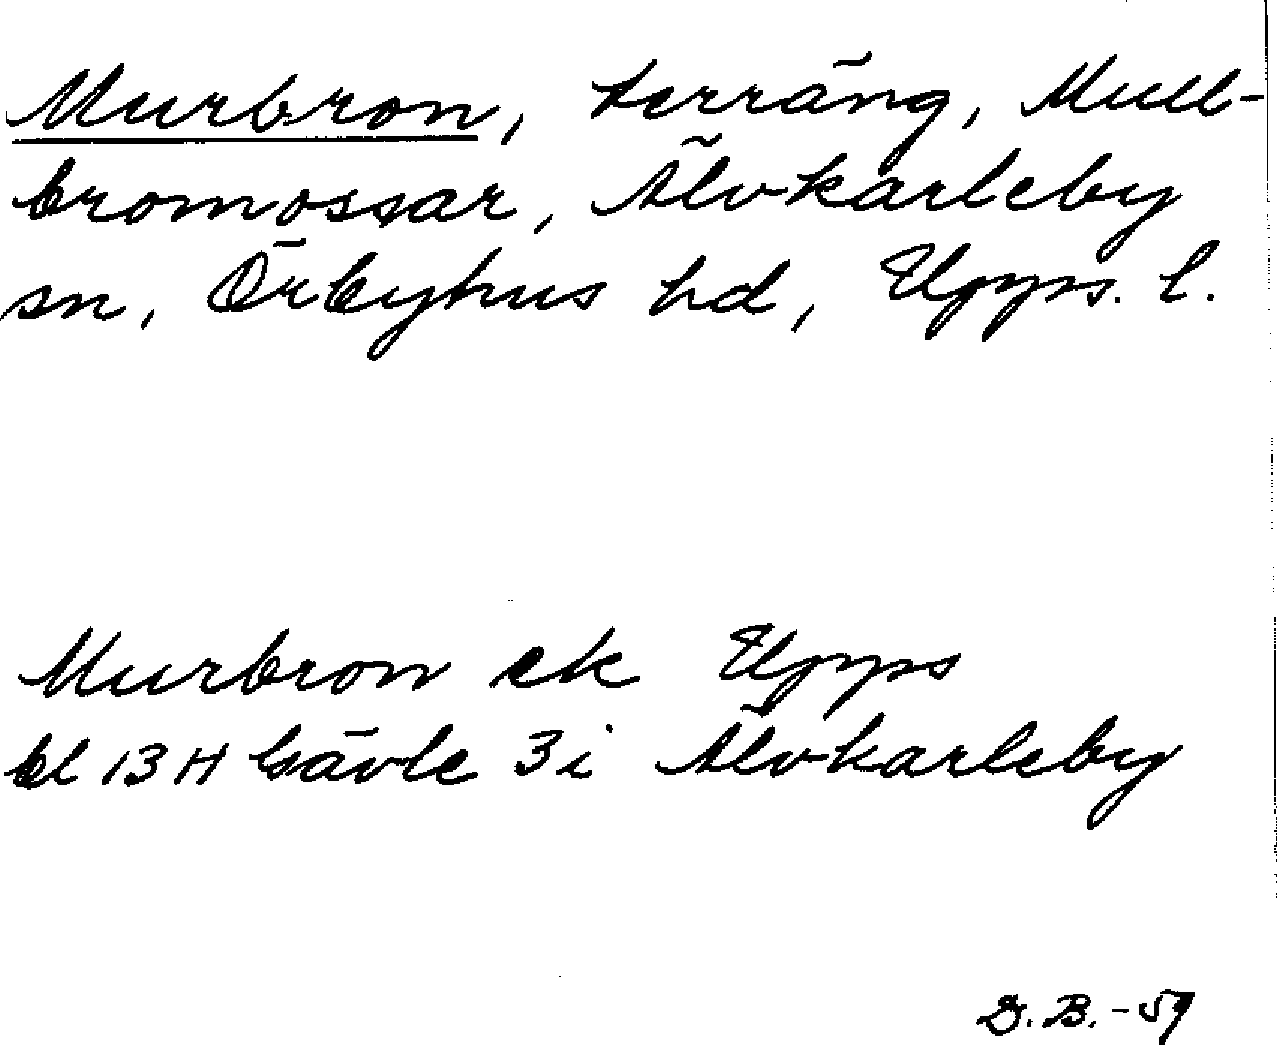 Murbron, terräng, Mull-
bromossar, Älvkarleby
sn, Örbyhus hd, Upps. l.
Murbron ek Upps
bl 13 H Gävle 3i Älvkarleby
D.B. -59